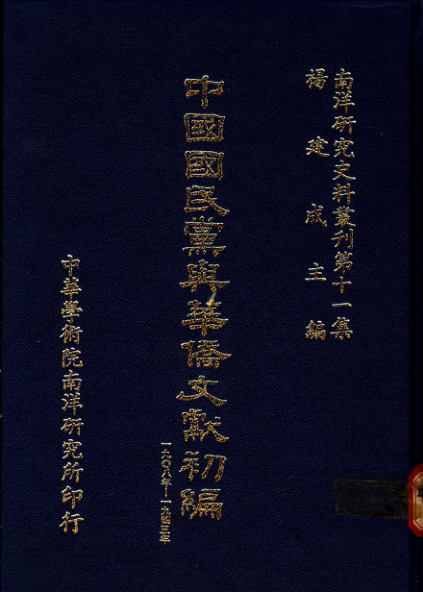 南洋研究史料叢刊第十一集
楊建成主編
中國國民黨與華僑文獻初編
一九〇八年—一九四五年
中華學術院南洋研究所印行